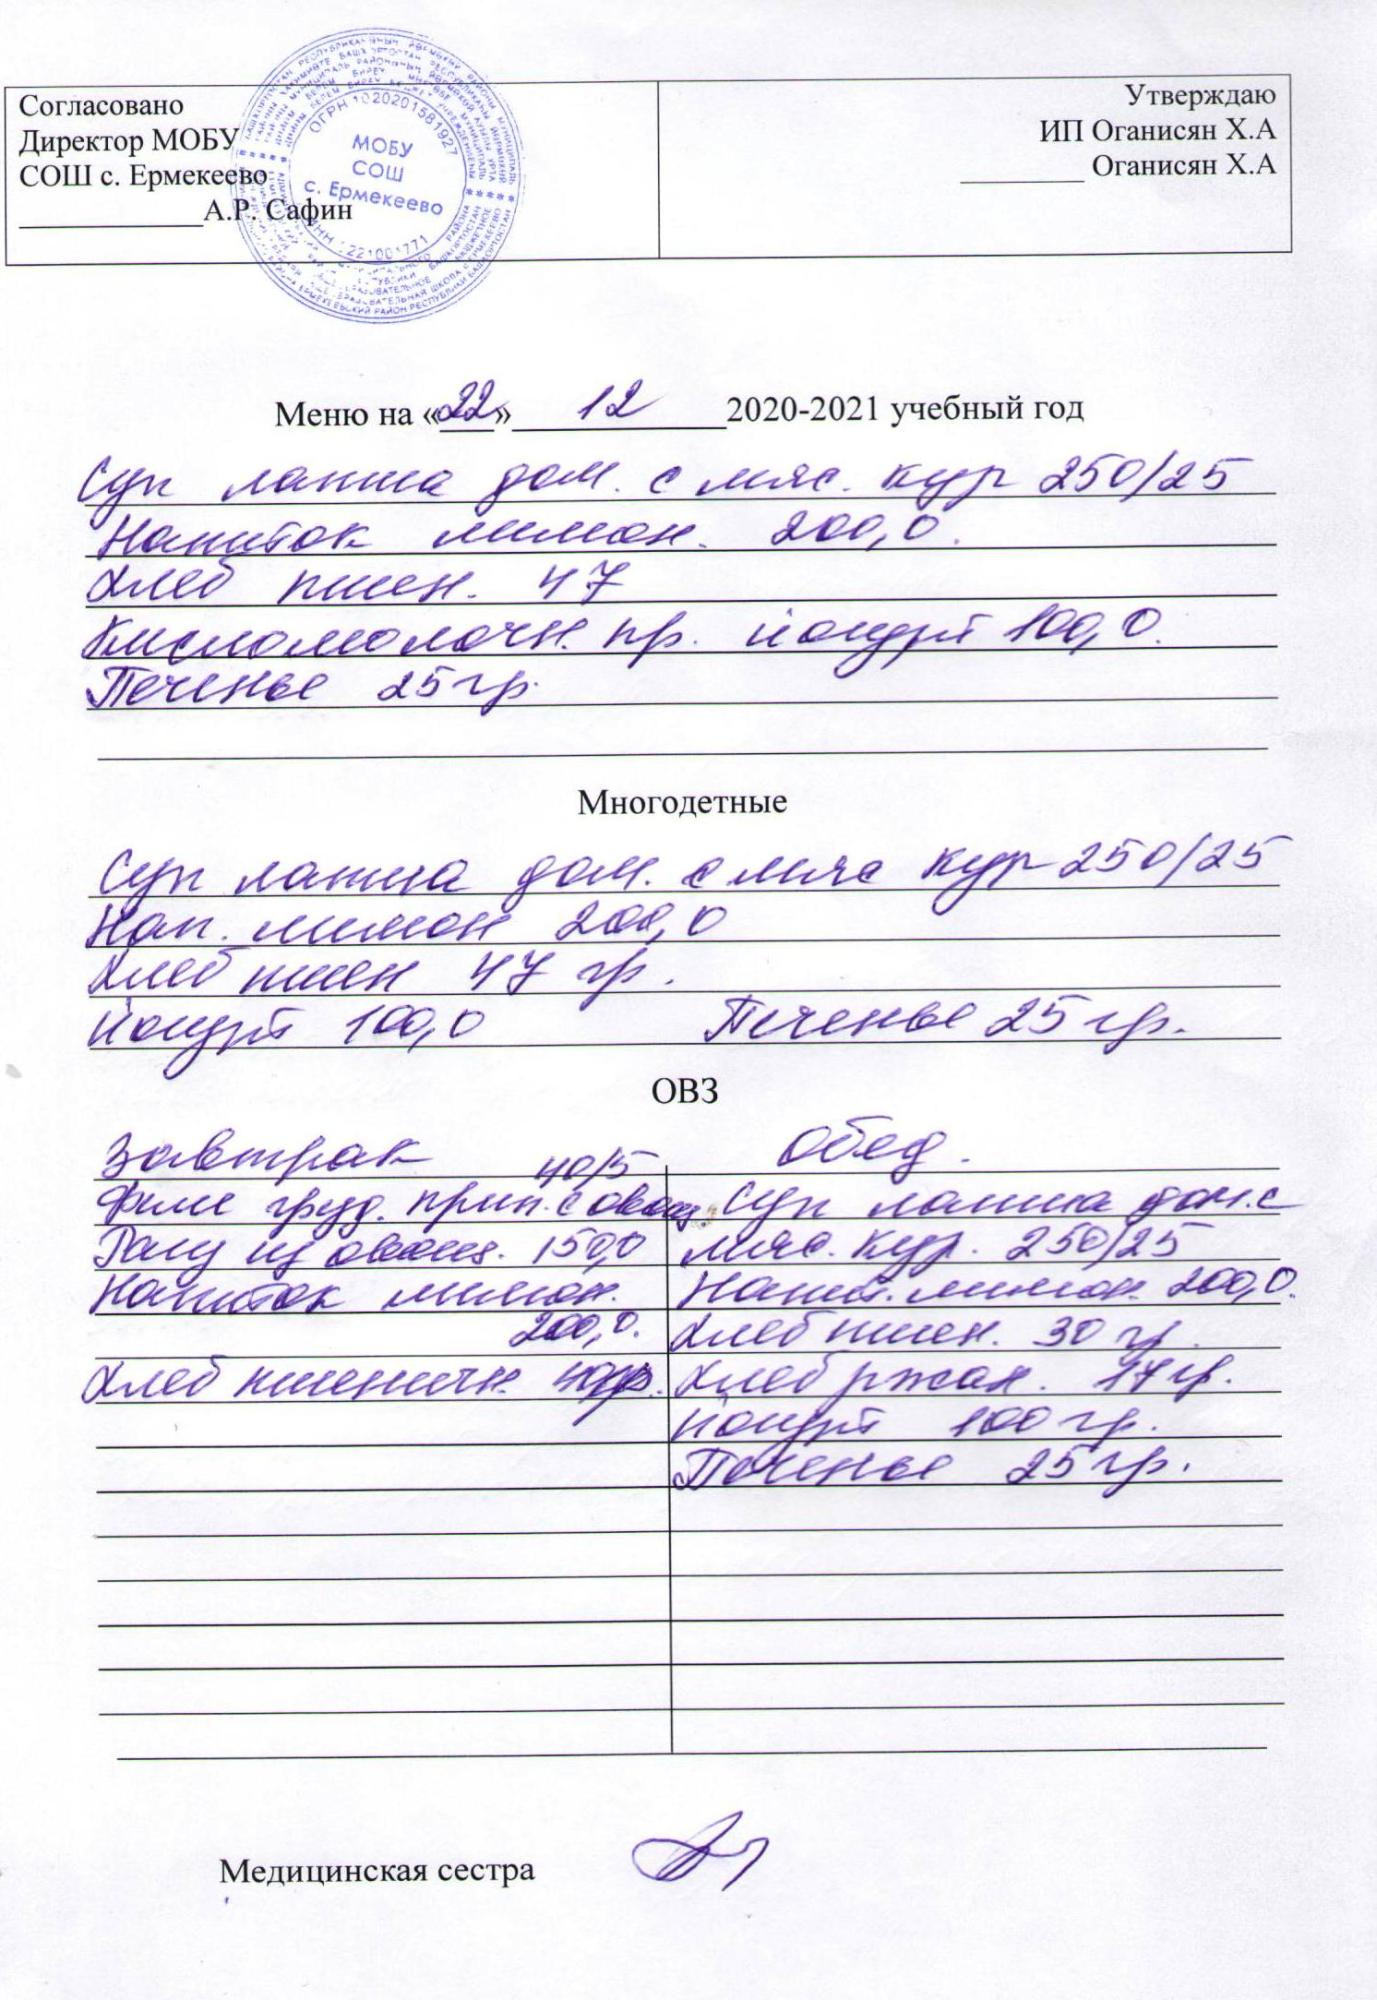 Согласовано
Директор МОБУ
СОШ с. Ермекеево
_____________А.Р. Сафин
Утверждаю
ИП Оганисян Х.А
_________ Оганисян Х.А
ОГРН 1020201581927
МОБУ
СОШ
с. Ермекеево
Меню на «22» 12 2020-2021 учебный год
Суп лапша дом. с мяс. кур 250/25
Напиток лимон. 200,0.
Хлеб пшен. 47
Кисломолочн. пр. йогурт 100,0.
Печенье 25 гр.
Многодетные
Суп лапша дом. с мяс кур 250/25
Нап. лимон 200,0
Хлеб пшен 47 гр.
Йогурт 100,0 Печенье 25 гр.
ОВЗ
Завтрак
40/5
Филе груд. прип. с овощ
Рагу из овощ. 150,0
Напиток лимон.
200,0.
Хлеб пшеничн. 40гр.
Обед.
Суп лапша дом. с
мяс. кур. 250/25
Напит. лимон. 200,0.
Хлеб пшен. 30 гр.
Хлеб ржан. 17 гр.
Йогурт 100 гр.
Печенье 25 гр.
Медицинская сестра